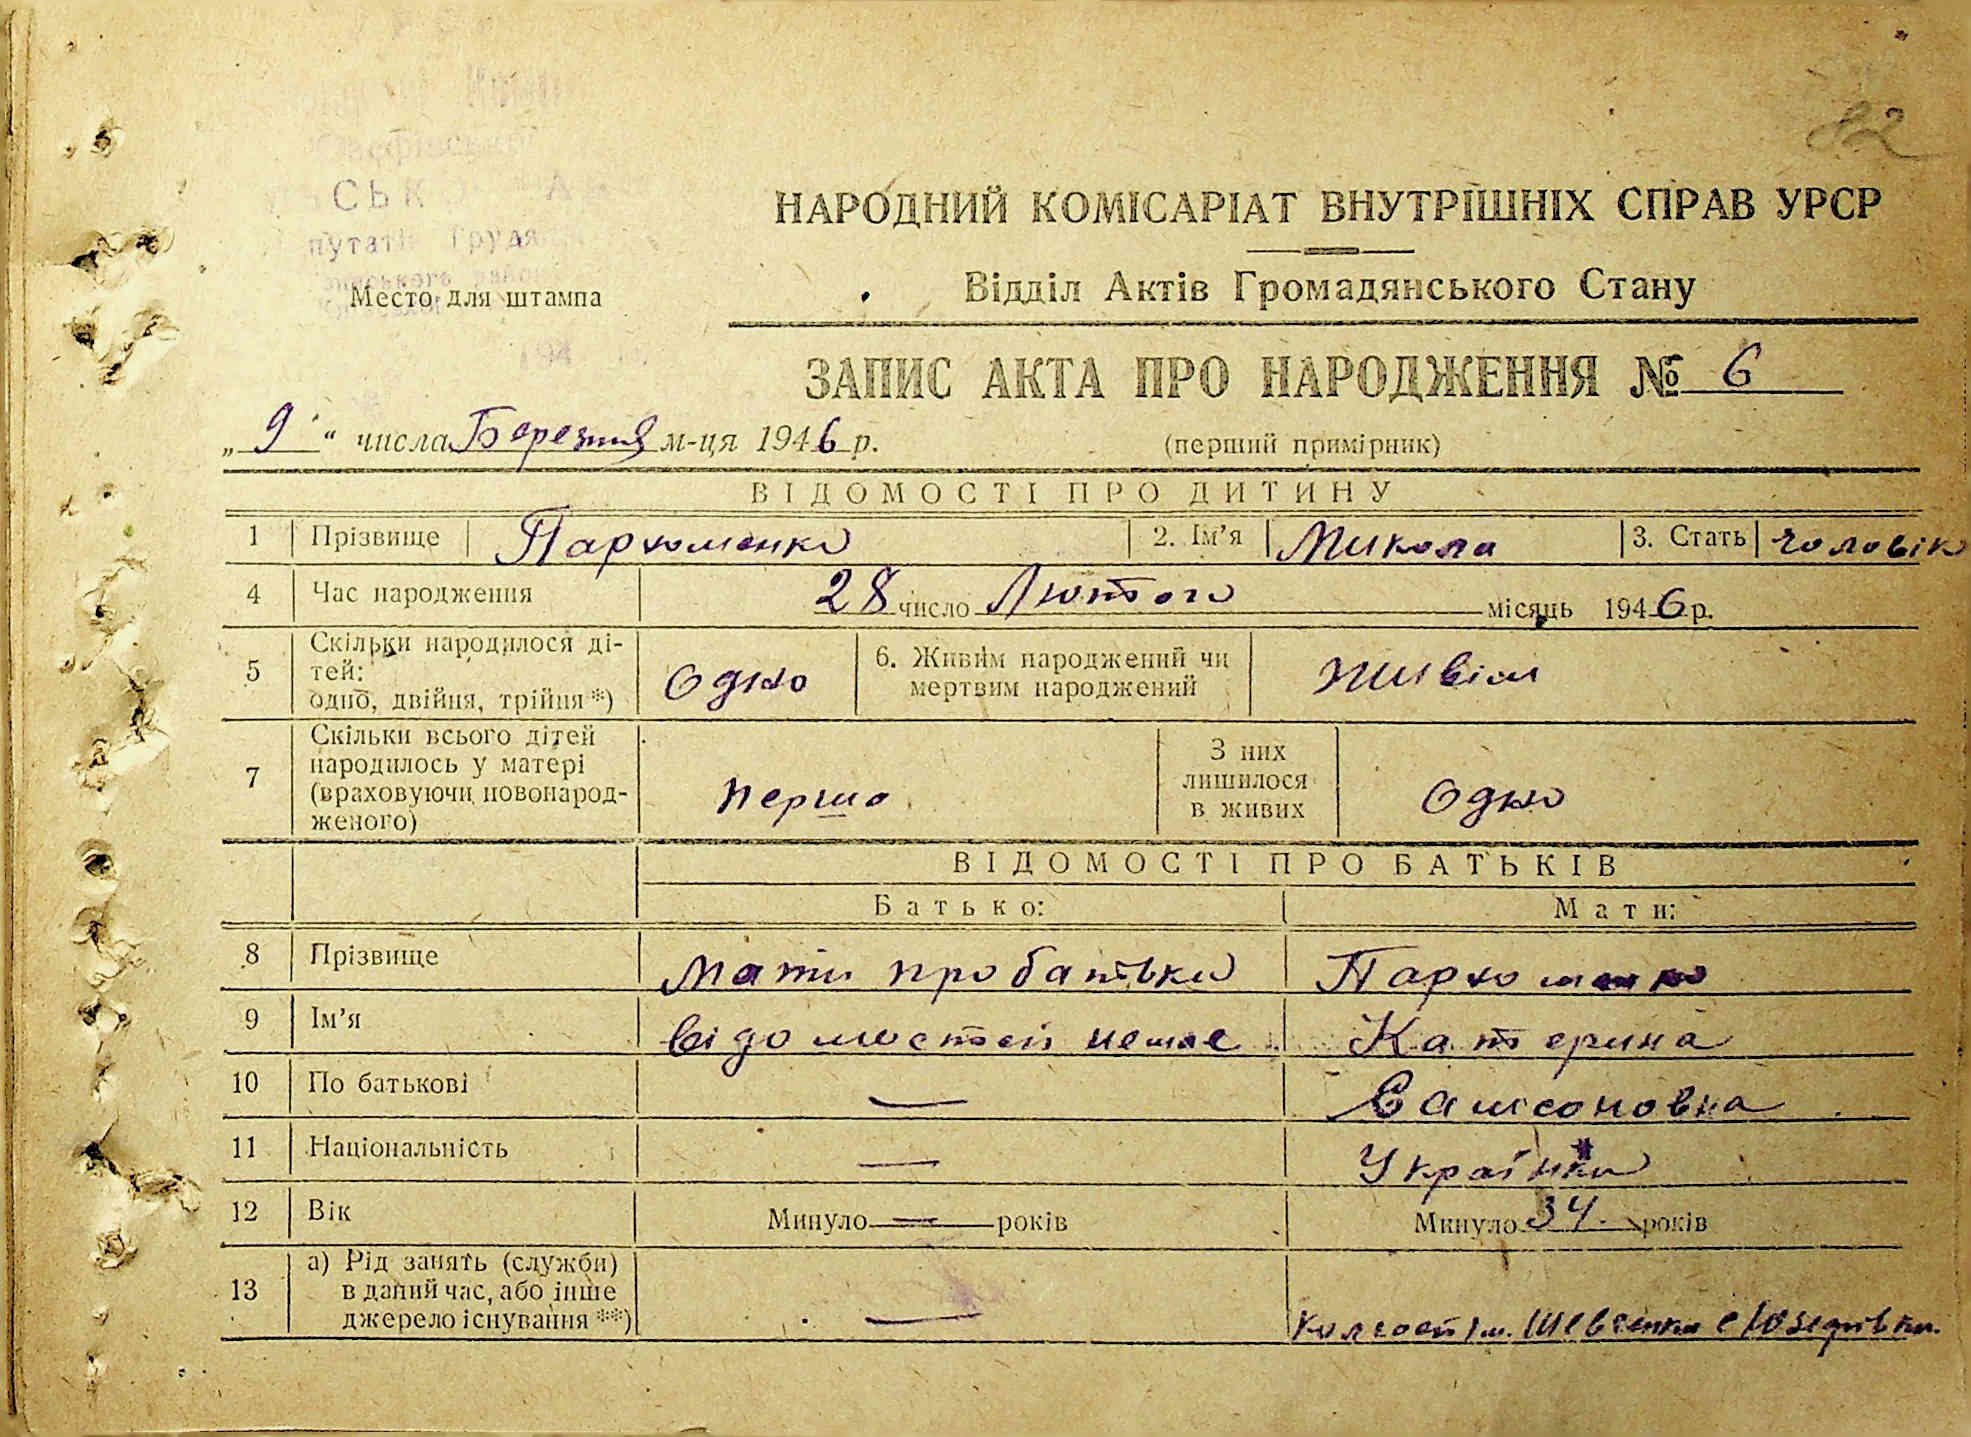 82
НАРОДНИЙ КОМІСАРІАТ ВНУТРІШНІХ СПРАВ УРСР
Відділ Актів Громадянського Стану
Место для штампа
ЗАПИС АКТА ПРО НАРОДЖЕННЯ № 6
„ 9 “ числа Березня м-ця 1946 р.
(перший примірник)
ВІДОМОСТІ ПРО ДИТИНУ
1 Прізвище Пархоменко 2. Ім’я Микола 3. Стать чоловік
4 Час народження 28 число Лютого місяць 1946 р.
5 Скільки народилося ді-
тей:
одно, двійня, трійня *) Одно 6. Живим народжений чи
мертвим народжений Живим
7 Скільки всього дітей
народилось у матері
(враховуючи новонарод-
женого) перша З них
лишилося
в живих Одно
ВІДОМОСТІ ПРО БАТЬКІВ
Батько: Мати:
8 Прізвище Мати про батька Пархоменко
9 Ім’я відомостей немає Катерина
10 По батькові — Самсоновна
11 Національність — Українка
12 Вік Минуло — років Минуло 34 років
13 а) Рід занять (служби)
в даний час, або інше
джерело існування **) — Колгосп ім. Шевченка с Юзефівка